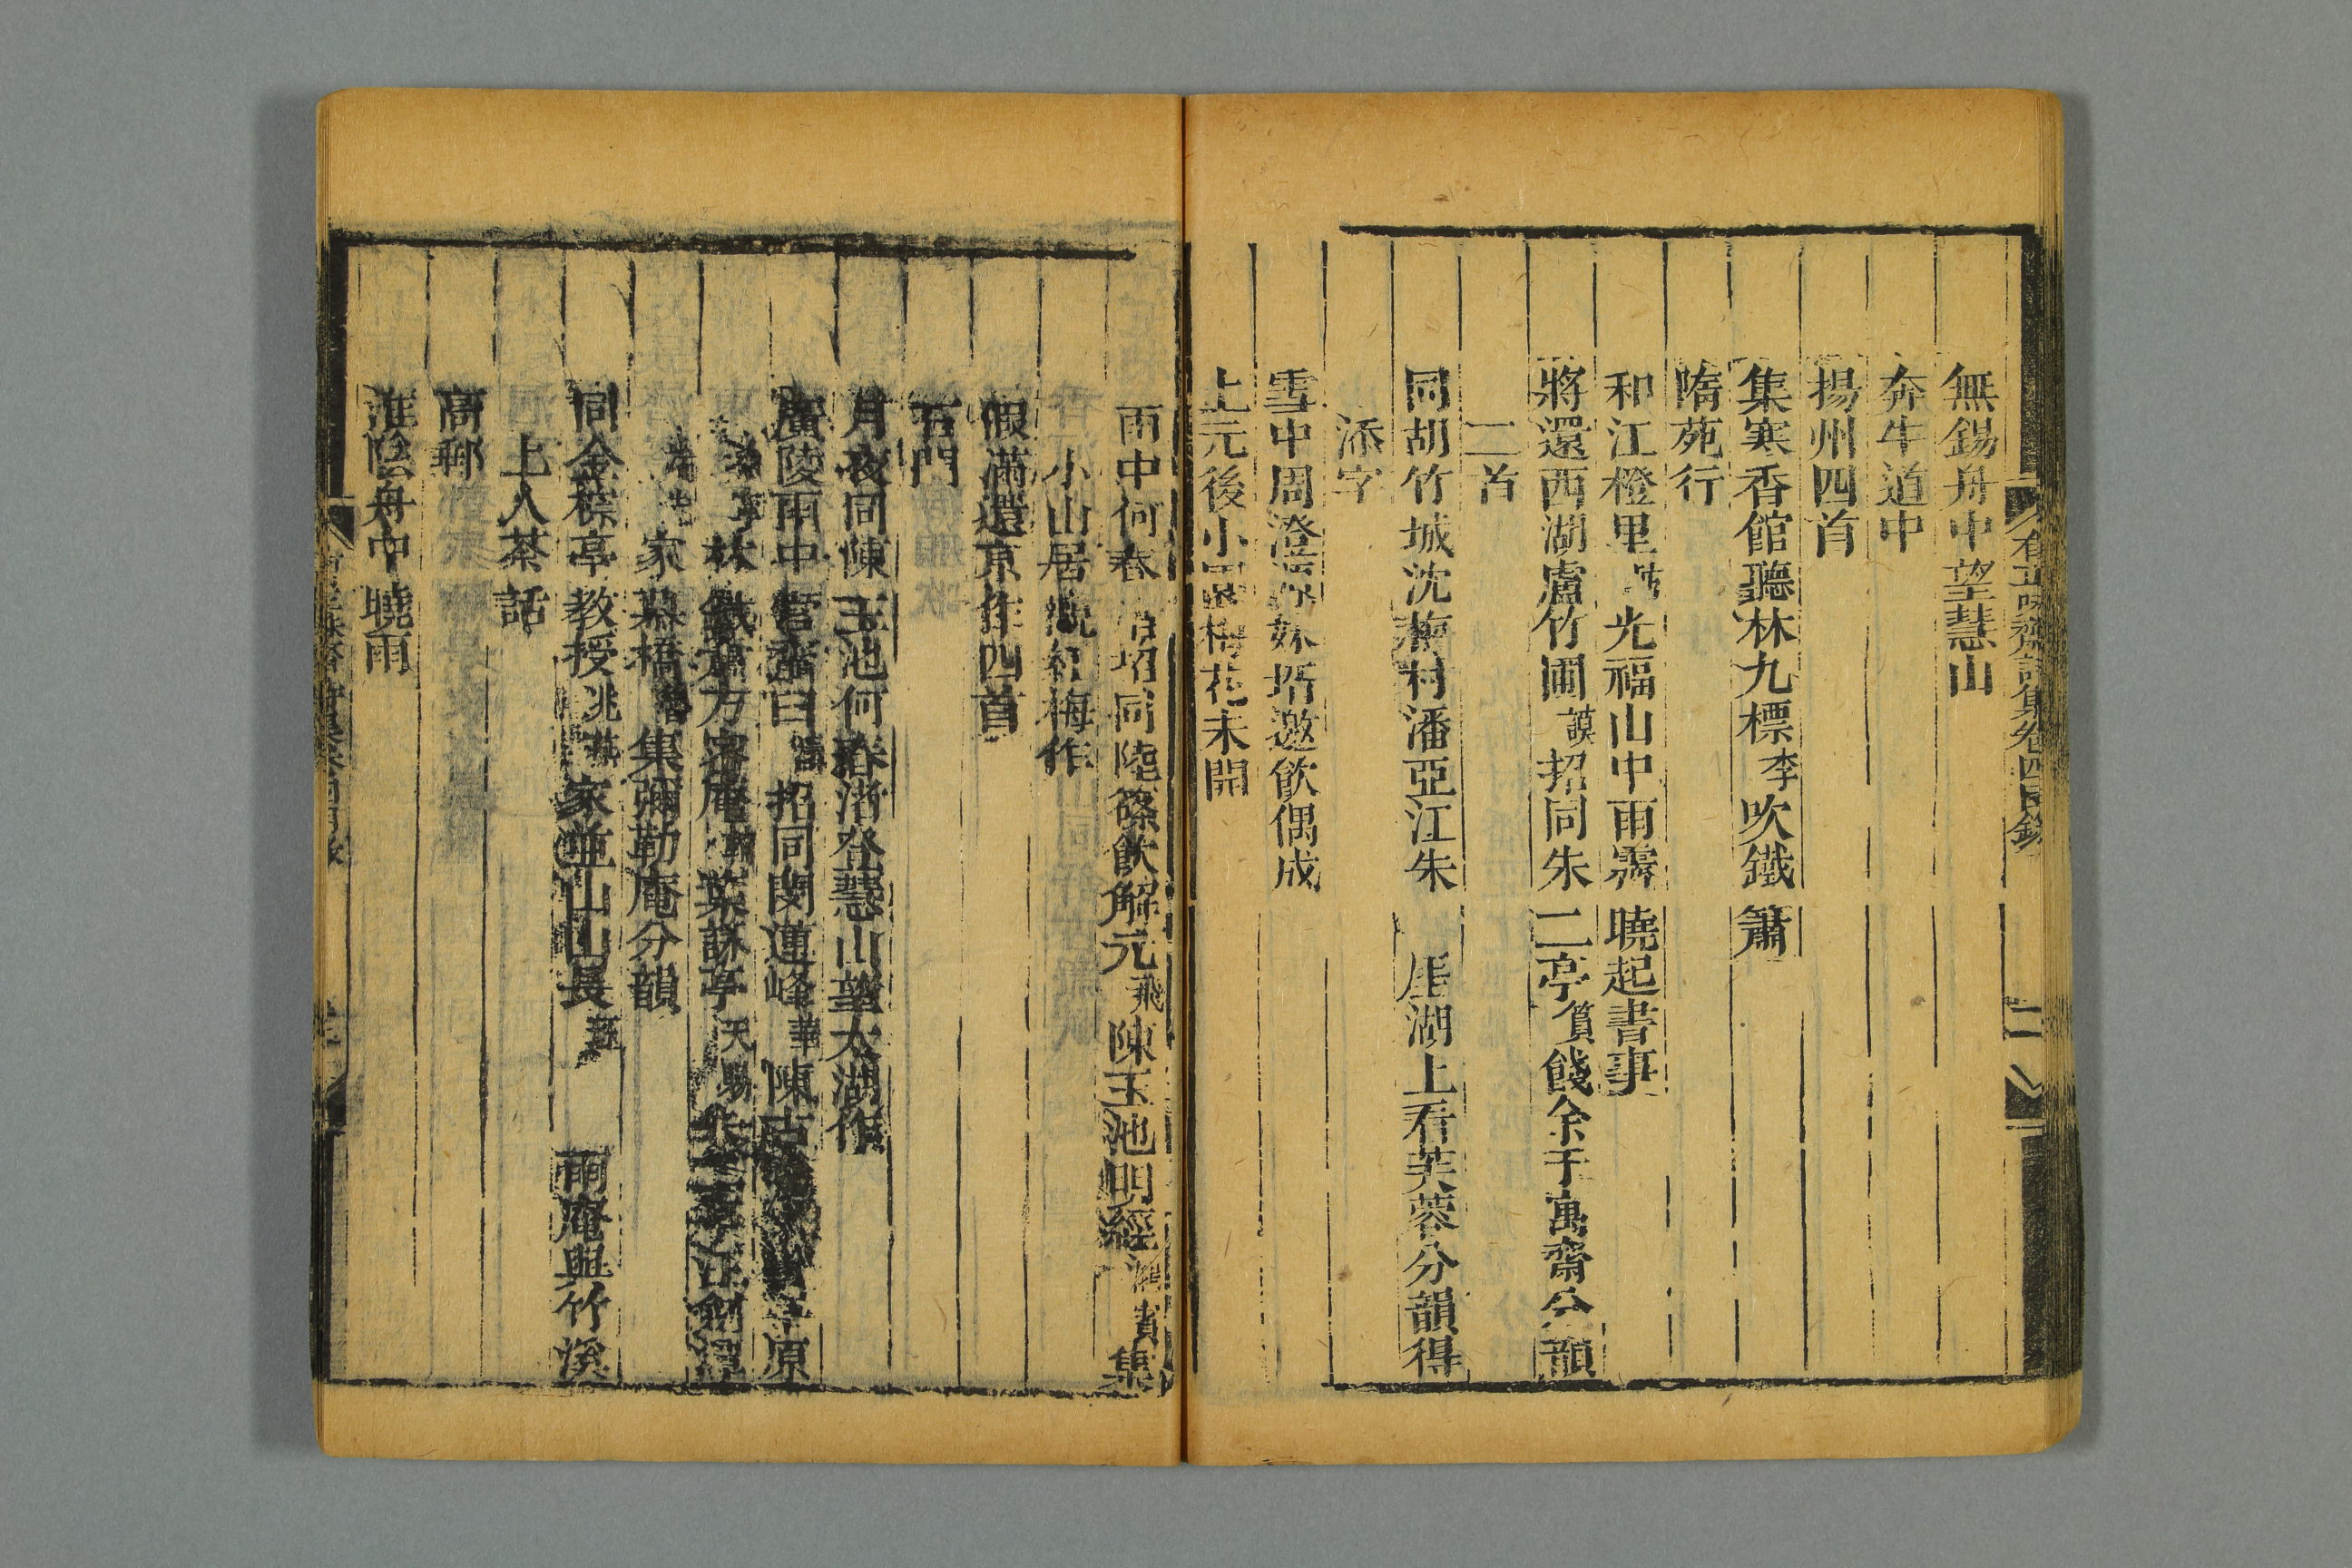 有正味齋詩集卷四目錄
二
無錫舟中望慧山
奔牛道中
揚州四首
集寒香館聽林九標李吹鐵簫
隋苑行
和江橙里光福山中雨霽曉起書事
將還西湖盧竹圃謨招同朱二亭篔餞余于寓齋分韻
二首
同胡竹城沈梅村潘亞江朱湖上看芙蓉分韻得
添字
雪中周澄妹壻邀飲偶成
上元後小梅花未開
雨中何春招同陸篠飲解元飛陳玉池明經濰賓集
小山居紅梅作
假滿還京作四首
石門
月夜同陳玉池何春渚登慧山望太湖作
廣陵雨中官齋曰招同閔蓮峰華陳古原
林鐵簫方密庵葉詠亭天賜朱二亭汪劍潭
家慕橋集彌勒庵分韻
同金棕亭教授兆燕家並山山長雨庵與竹溪
上人茶話
高郵
淮陰舟中曉雨